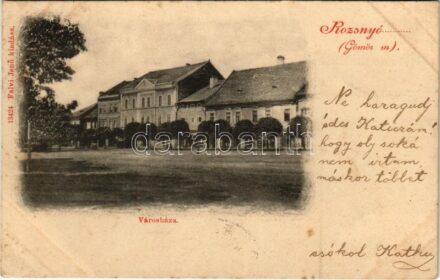 Rozsnyó
(Gömör m).
13424 Falvi Jenő kiadása.
Ne haragudj
édes Katuczám!
hogy oly soká
nem irtam
máskor többet
csókol Kathy
darabanth.com
Városháza.